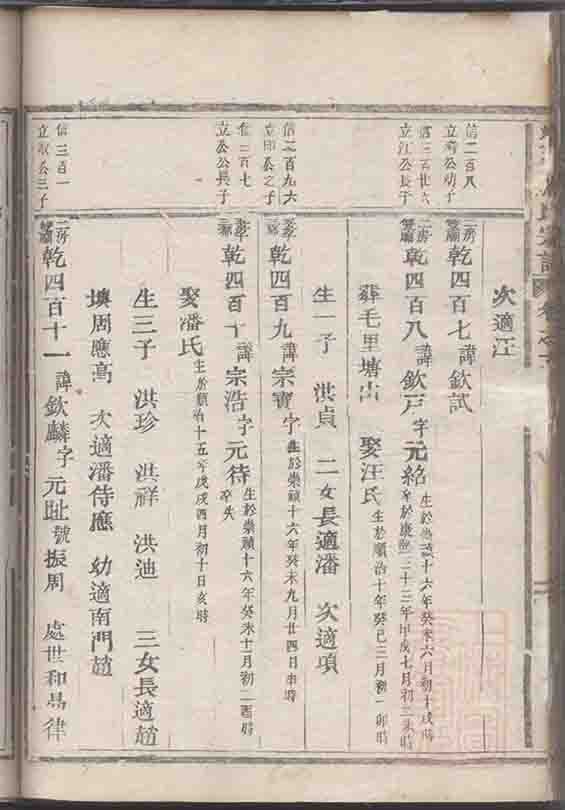 次適江
信二百八
立 公幼子
二房
雙廟
乾四百七 諱欽試
信三百廿六
立江公長子
二房
雙廟
乾四百八 諱欽 字元紹 生於崇禎十六年癸未六月初十戌時
卒於康熙三十三年甲戌七月初三 時
葬毛里塘 娶汪氏 生於順治十年癸巳三月初一卯時
生一子 洪貞 二女長適潘 次適項
信二百九六
立印公之子
乾四百九 諱宗寶字 生於崇禎十六年癸未九月廿四日申時
信三百七
立公公長子
乾四百十 諱宗浩字元待 生於崇禎十六年癸未十二月初二酉時
卒失
娶潘氏 生於順治十五年戊戌四月初十日亥時
生三子 洪珍 洪祥 洪迪 三女長適趙
塘周應高 次適潘侍應 幼適南門趙
信三百一
立 公三子
二房
雙廟
乾四百十一 諱欽麟字元趾號振周 處世和易律